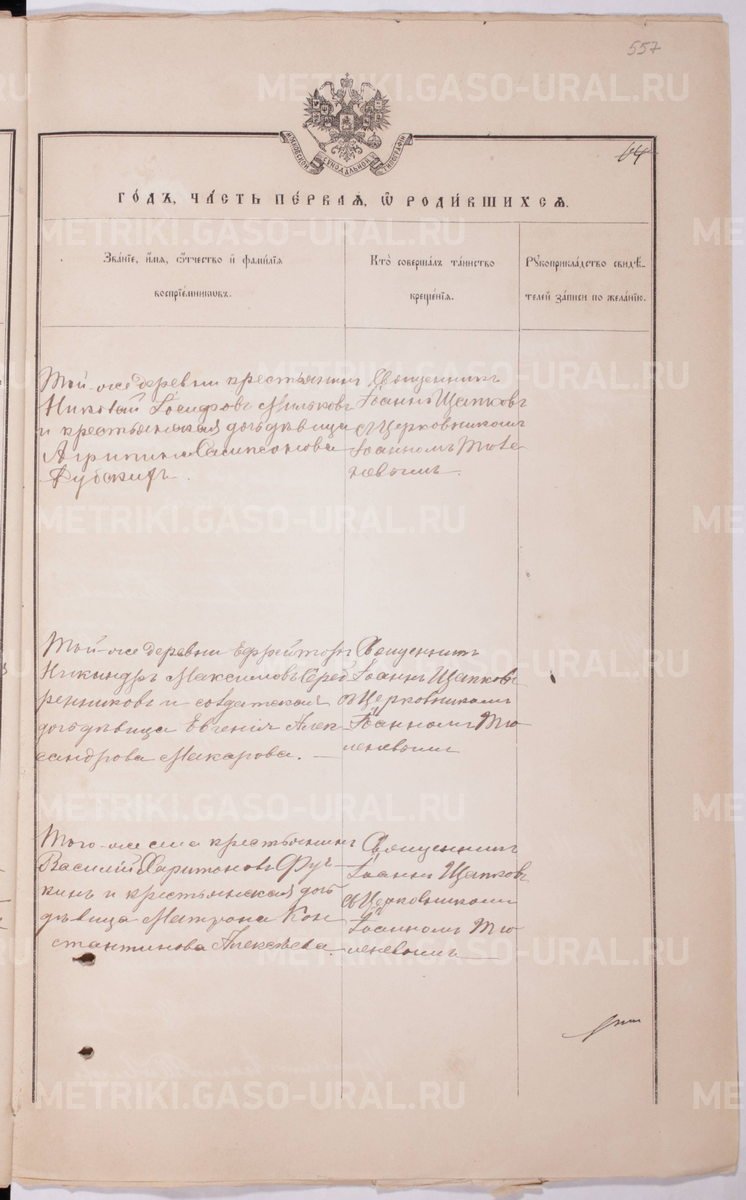 557
64
МОСКОВСКОЙ СѴНОДАЛЬНОЙ ТИПОГРАФІИ
ГО́ДЪ, ЧА́СТЬ ПЕ́РВАЯ, Ѡ РОДИ́ВШИХСѦ.
Зва́нїе, и́мя, ѻ҆́тчество и҆ фами́лїя
воспрїе́мниковъ.
Кто̀ соверша́лъ та́инство
креще́нїя.
Рꙋкоприкла́дство свидѣ́-
телей за́писи по жела́нїю.
Той-же деревни крестьянинъ
Николай Іосифовъ Мильковъ
и крестьянская дочь дѣвица
Агрипина Сампсонова
Священникъ
Іоаннъ Щапковъ
съ Церковникомъ
Іоанномъ Тюле
невымъ.
Той-же деревни Ефрейторъ
Никандръ Максимовъ Серед
ренниковъ и солдатская
дочь дѣвица Евгенія Алек
сандрова Макарова.
Священникъ
Іоаннъ Щапковъ
съ Церковникомъ
Іоанномъ Тю
леневымъ
Того-же села крестьянинъ
Василій Харитоновъ Фуч
кинъ и крестьянская дочь
дѣвица Матрона Кон
стантинова Алексѣева.
Священникъ
Іоаннъ Щапковъ
съ Церковникомъ
Іоанномъ Тю
леневымъ
METRIKI.GASO-URAL.RU